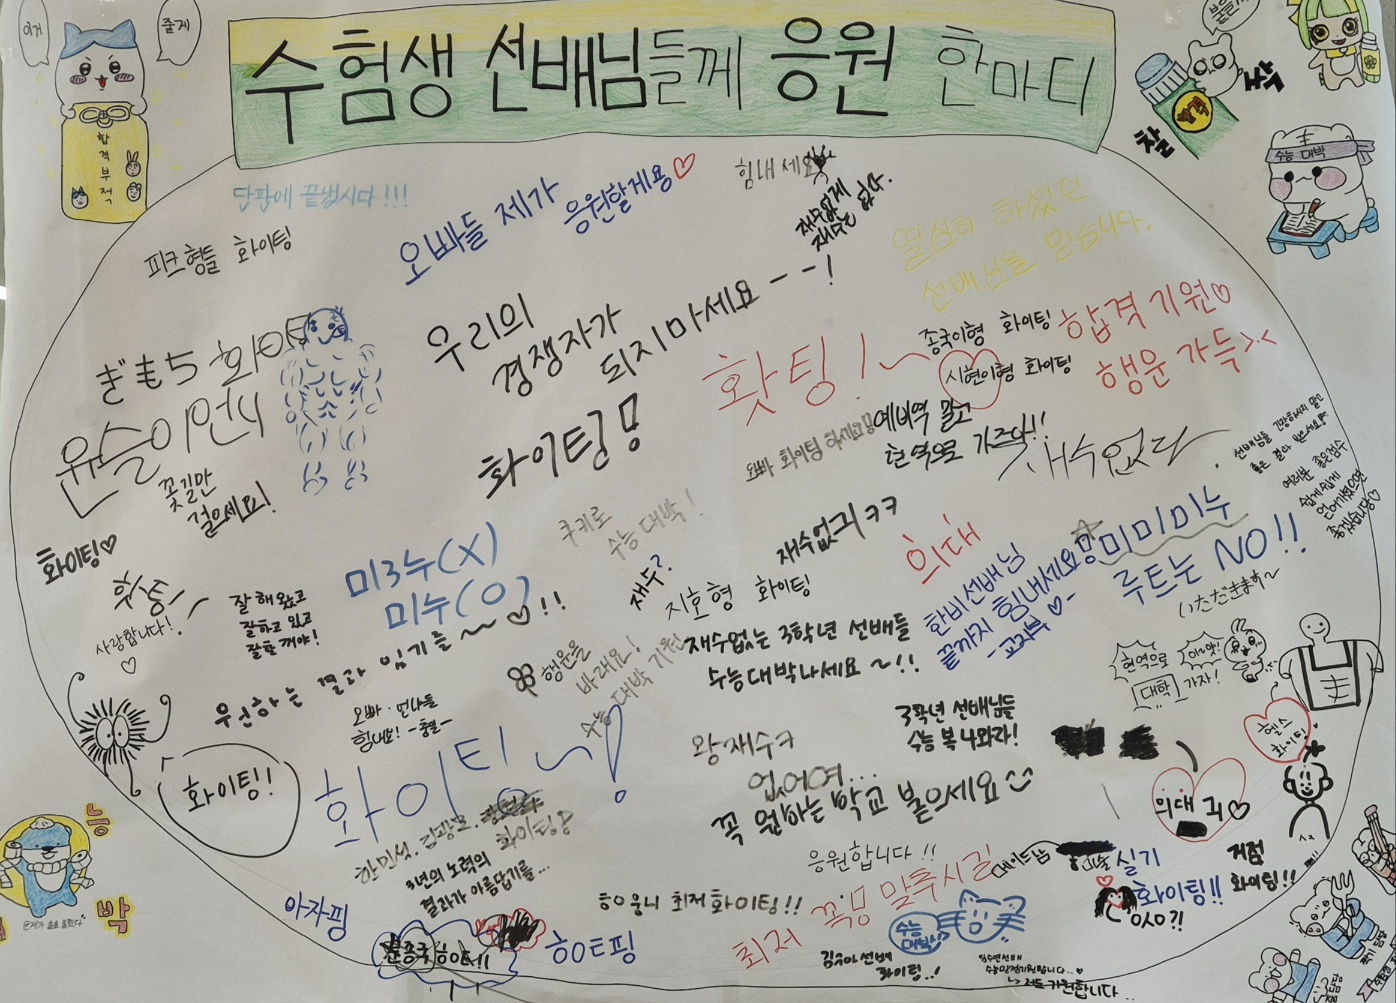 이거
줄게
합격부적
수험생 선배님들께 응원 한마디
수능 대박
단판에 끝냅시다!!!
오빠들 제가
응원할게용♡
힘내세요
재수없게
재수는 없다.
열심히 하셨던
선배님을 믿습니다.
피크 형들 화이팅
우리의
경쟁자가
되지마세요--!
화이팅!
ぎもち 화이팅
원슬이언니
꽃길만
걸으세요!
홧팅!~
종국이형 화이팅
시현이형 화이팅
합격 기원♡
행운 가득><
오빠 화이팅 하세요!
예비역 말고
현역으로 가즈아!!
재수없다
선배님들 긴장하시지 말고
좋은 결과 있으세요
여러분 좋은점수
쉽게쉽게
얻어가셨으면
좋겠습니다♡
화이팅♡
홧팅~
사랑합니다!
♡
잘 해 왔고
잘하고 있고
잘할 꺼야!
미3누(X)
미누(O)
쿠키로
수능 대박!
재수?
재수없긔 ㅋㅋ
지호형 화이팅
의대
한비선배님
끝까지 힘내세요
-교지부♡-
미미미누
루트는 NO!!
いただきます~
원하는 결과 있기를~♡!!
행운을
바래요!
수능 대박 기원
재수없는 3학년 선배들
수능대박나세요~!!
현역으로
대학 가자!
오빠·언니들
힘내요!
화이팅!
화이팅~!
왕재수ㅋ
없어여...
꼭 원하는 학교 붙으세요
3학년 선배님들
수능 복 나와라!
헬스
화이팅!
의대 귀♡
한민석, 김광호,
화이팅
3년의 노력의
결과가 아름답기를...
응원합니다!!
최저 꼭 맞추시길
수능
대박
미술 실기
화이팅!!
있으?!
저점
화이팅!!
능
박
아자핑
문종국
히웅니 최저 화이팅!!
히트핑
김수아 선배
화이팅..!